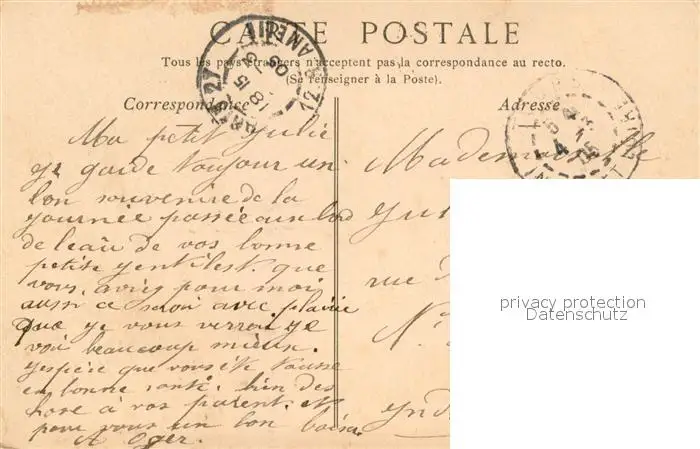 CARTE POSTALE
Tous les pays étrangers n'acceptent pas la correspondance au recto.
(Se renseigner à la Poste).
Correspondance
Adresse
Ma petit Julie
je garde toujour un
bon souvenire de la
journée passée au bord
de l'eau de vos bonne
petite gentilest. que
vous. aviés pour moi
aussi ce serai avec plaisir
que je vous verrai je
voi beaucoup mieux.
j'espère que vous ète tousse
en bonne santé. bien des
chose à vos parent. et
pour vous un bon baiser
A Oger.
Mademoiselle
rue
privacy protection
Datenschutz